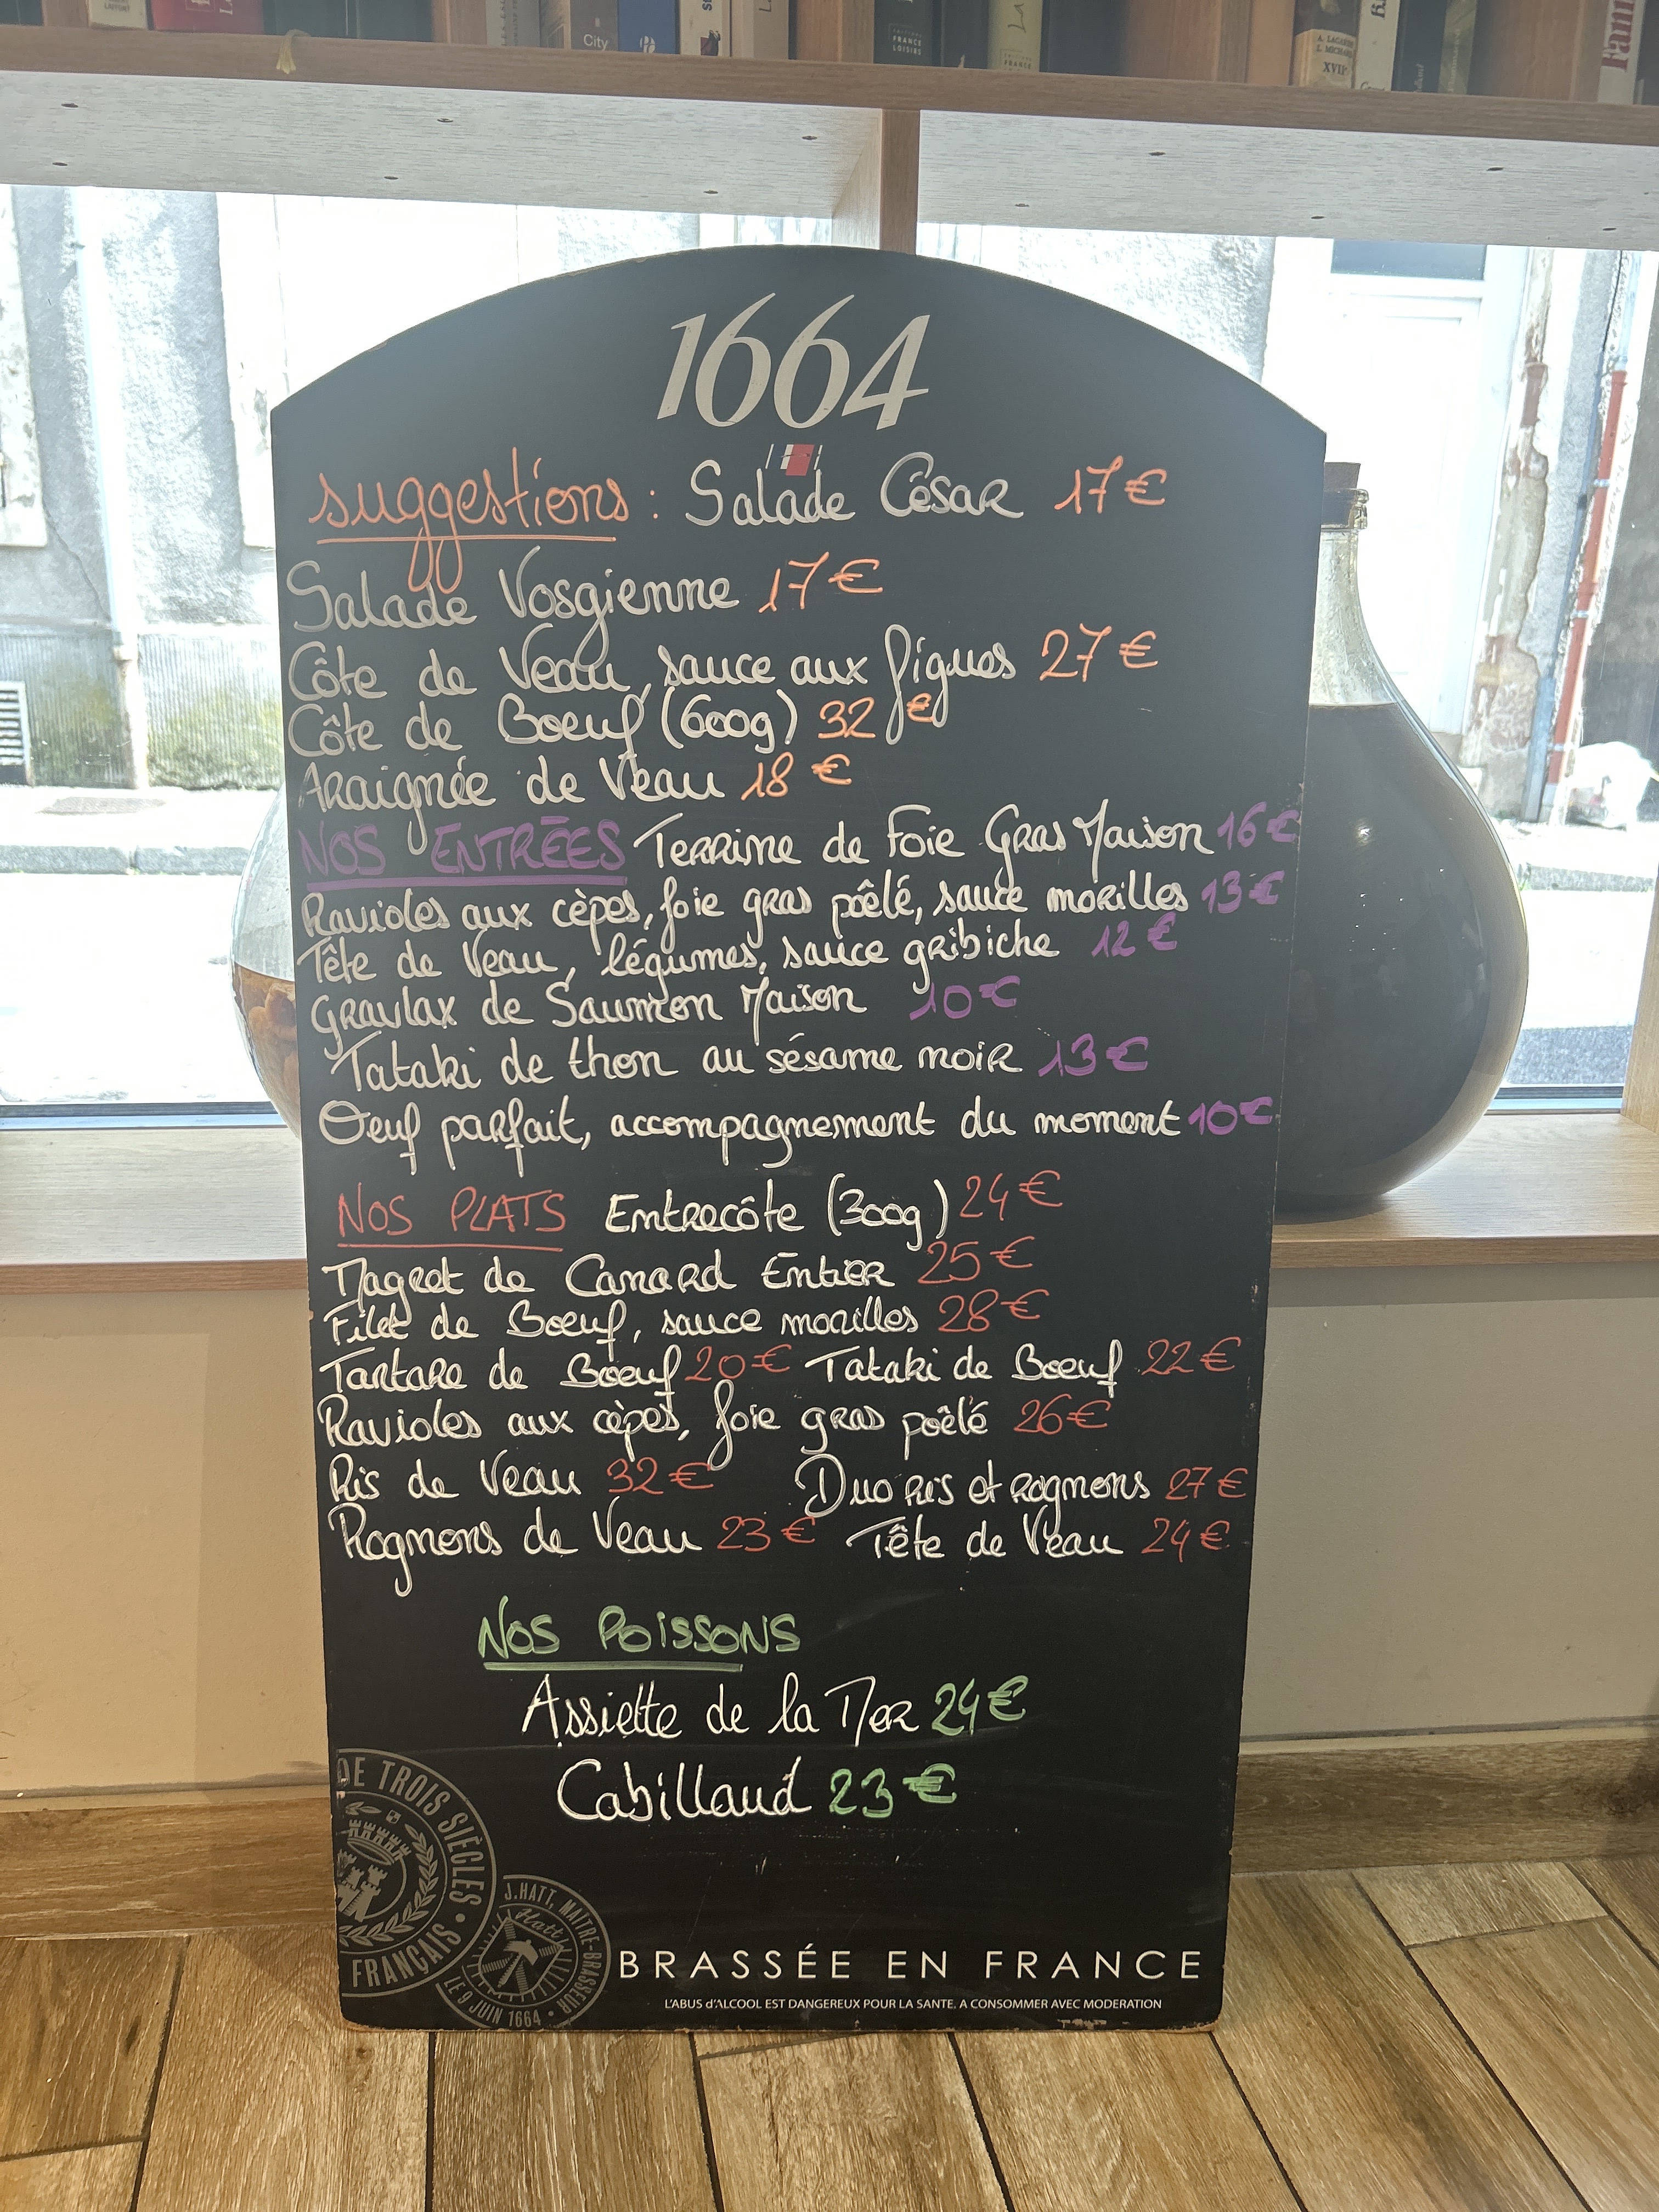 City
FRANCE
LOISIRS
A. LAGARDE
L. MICHARD
XVIIᵉ
1664
suggestions : Salade César 17€
Salade Vosgienne 17€
Côte de Veau, sauce aux figues 27€
Côte de Boeuf (600g) 32 €
Araignée de Veau 18 €
NOS ENTRÉES Terrine de Foie Gras Maison 16€
Ravioles aux cèpes, foie gras poêlé, sauce morilles 13€
Tête de Veau, légumes, sauce gribiche 12€
Gravlax de Saumon Maison 10€
Tataki de thon au sésame noir 13€
Oeuf parfait, accompagnement du moment 10€
NOS PLATS Entrecôte (300g) 24€
Magret de Canard Entier 25€
Filet de Boeuf, sauce morilles 28€
Tartare de Boeuf 20€ Tataki de Boeuf 22€
Ravioles aux cèpes, foie gras poêlé 26€
Ris de Veau 32€ Duo Ris et rognons 27€
Rognons de Veau 23€ Tête de Veau 24€
NOS POISSONS
Assiette de la Mer 24€
Cabillaud 23€
DE TROIS SIÈCLES • FRANÇAIS
J.HATT, MAITRE-BRASSEUR • LE 9 JUIN 1664 •
Hatt
BRASSÉE EN FRANCE
L'ABUS d'ALCOOL EST DANGEREUX POUR LA SANTE. A CONSOMMER AVEC MODERATION